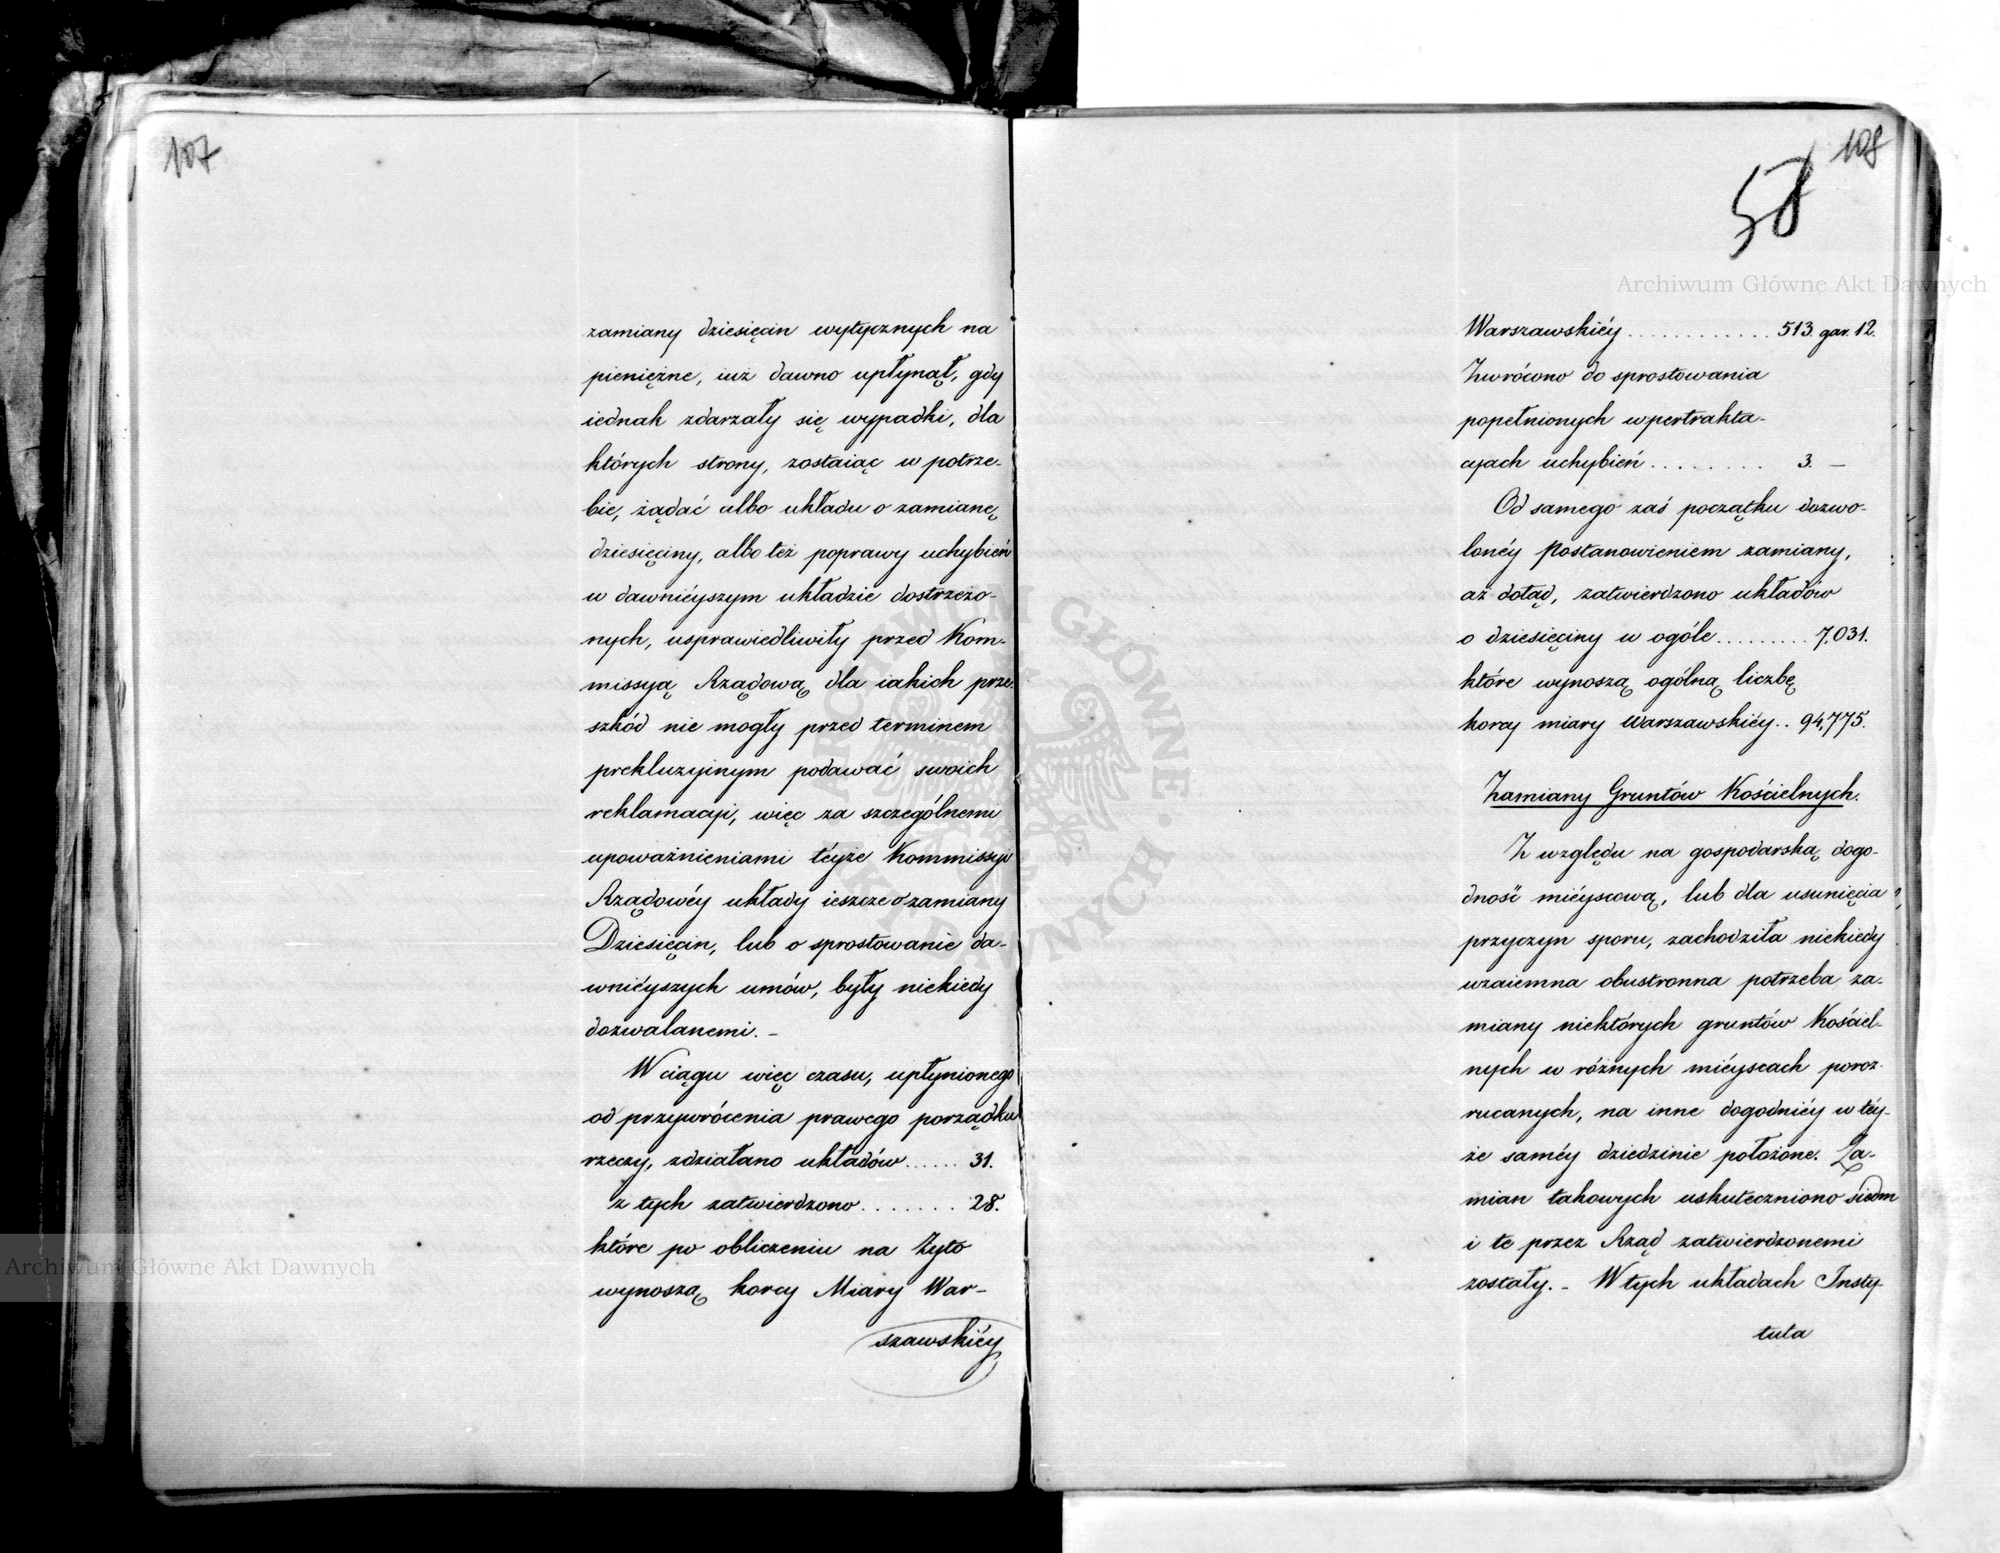 107
zamiany dziesięcin wytycznych na
pieniężne, iuż dawno upłynął, gdy
iednak zdarzały się wypadki, dla
których strony, zostaiąc w potrze-
bie, żądać albo układu o zamianę
dziesięciny, albo też poprawy uchybień
w dawnieyszym układzie dostrzeżo-
nych, usprawiedliwiły przed Kom-
missyą Rządową dla iakich prze-
szkód nie mogły przed terminem
prekluzyinym podawać swoich
reklamacji, więc za szczególnemi
upoważnieniami téyże Kommissyi
Rządowéy układy ieszcze o zamiany
Dziesięcin, lub o sprostowanie da-
wniéyszych umów, były niekiedy
dozwalanemi. –
W ciągu więc czasu, upłynionego
od przywrócenia prawego porządku
rzeczy, zdziałano układów ...... 31.
z tych zatwierdzono ....... 28.
które po obliczeniu na Żyto
wynoszą korcy Miary War-
szawskiéy
108
58
Warszawskiéy ............ 513. gar. 12.
Zwrócono do sprostowania
popełnionych w pertrakta-
cyach uchybień ........ 3. –
Od samego zaś początku dozwo-
lonéy Postanowieniem zamiany,
aż dotąd, zatwierdzono układów
o dziesięciny w ogóle ......... 7,031.
które wynoszą ogólną liczbę
korcy miary Warszawskiéy .. 94,775.
Zamiany Gruntów Kościelnych.
Z względu na gospodarską dogo-
dność miéyscową, lub dla usunięcia
przyczyn sporu, zachodziła niekiedy
wzaiemna obustronna potrzeba za-
miany niektórych gruntów Kościel-
nych w różnych miéyscach poroz-
rucanych, na inne dogodniéy w téy-
że saméy dziedzinie położone. Za-
mian takowych uskuteczniono siedm
i te przez Rząd zatwierdzonemi
zostały. – W tych układach Insty-
tuta
Archiwum Główne Akt Dawnych
Archiwum Główne Akt Dawnych